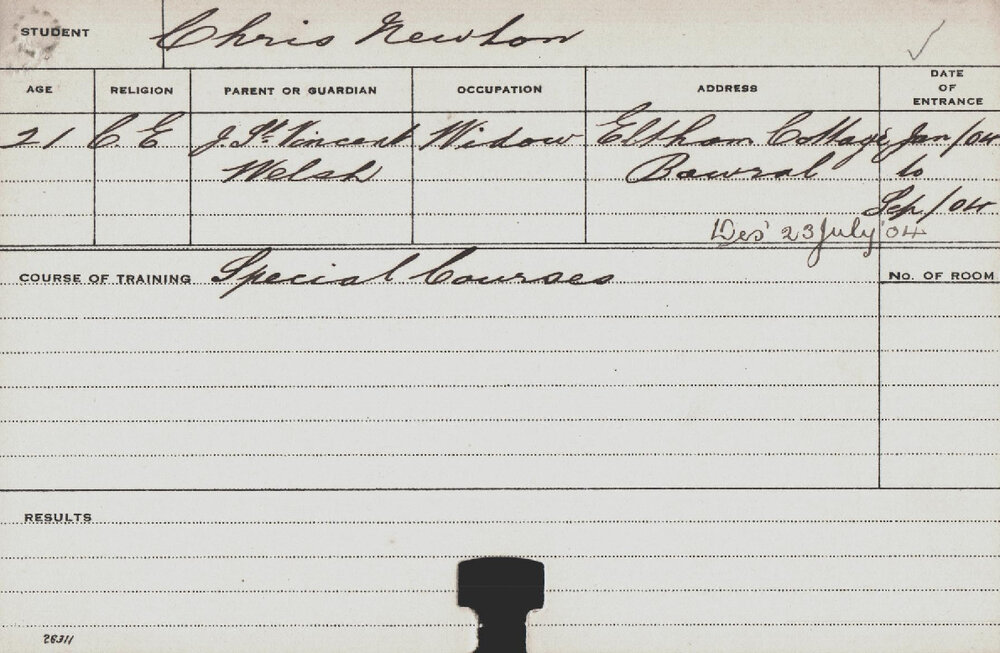 STUDENT Chris Newton
AGE RELIGION PARENT OR GUARDIAN OCCUPATION ADDRESS DATE OF ENTRANCE
21 C E J. St. Vincent Widow Eltham Cottage Jan/04
Welsh Bowral to
Sep/04
Des' 23 July '04
COURSE OF TRAINING Special Courses No. OF ROOM
RESULTS
28311